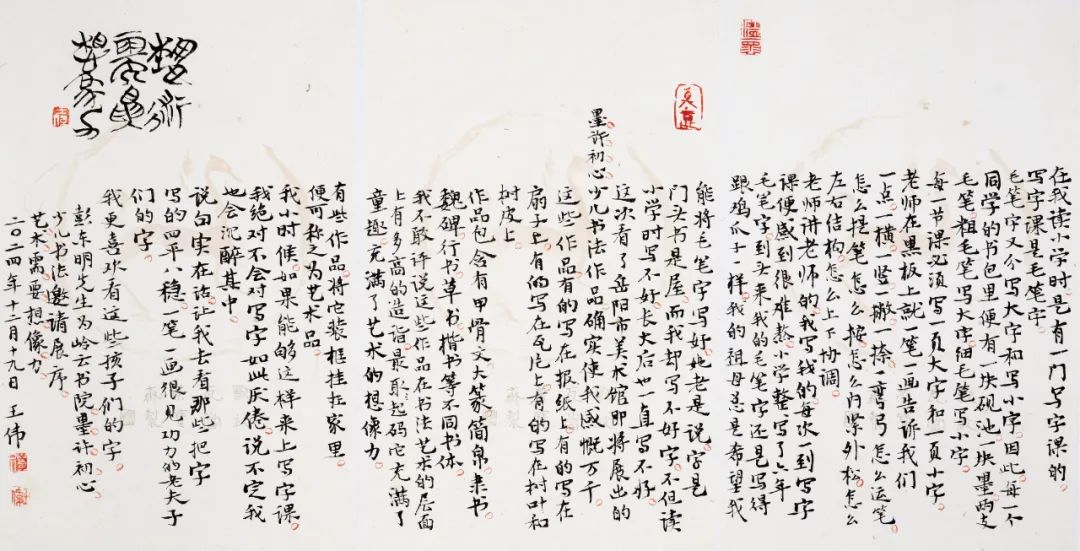 在我读小学时是有一门写字课的
写字课是毛笔字
毛笔字又分写大字和写小字因此每一个
同学的书包里便有一块砚池一块墨两支
毛笔粗毛笔写大字细毛笔写小字
每一节课必须写一页大字和一页小字
老师在黑板上就一笔一画告诉我们
一点一横一竖一撇一捺一弯弓怎么运笔
怎么提笔怎么按怎么内紧外松怎么
左右结构怎么上下协调
老师讲老师的我写我的每次一到写字
课便感到很难熬小学整整写了六年
毛笔字到头来我的毛笔字还是写得
跟鸡爪子一样我的祖母总是希望我
能将毛笔字写好她老是说字是
门头书是屋而我却写不好字不但读
小学时写不好长大后也一直写不好
这次看了岳阳市美术馆即将展出的
墨许初心少儿书法作品确实使我感慨万千
这些作品有的写在报纸上有的写在
扇子上有的写在瓦片上有的写在树叶和
树皮上
作品包含有甲骨文大篆简帛隶书
魏碑行书草书楷书等不同书体
我不敢评说这些作品在书法艺术的层面
上有多高的造诣最起码它充满了
童趣充满了艺术的想像力
有些作品将它装框挂在家里
便可称之为艺术品
我小时候如果能够这样来上写字课
我绝对不会对写字如此厌倦说不定我
也会沉醉其中
说句实在话让我去看那些把字
写的四平八稳一笔一画很见功力的老夫子
们的字
我更喜欢看这些孩子们的字
彭东明先生为岭云书院墨许初心
少儿书法邀请展序
艺术需要想像力
二〇二四年十二月十九日 王伟